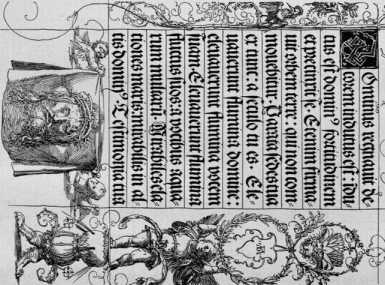 Ominus regnavit de-
corem indutus est: indu
tus est dominus fortitudinem
et precinxit se. Etenim firma-
vit orbem terre: qui non com-
movebitur. Parata sedes tua
ex tunc: a seculo tu es. Ele-
vaverunt flumina domine:
elevaverunt flumina vocem
suam. Elevaverunt flumina
fluctus suos: a vocibus aqua-
rum multarum. Mirabiles ela-
tiones maris: mirabilis in al
tis dominus. Testimonia tua